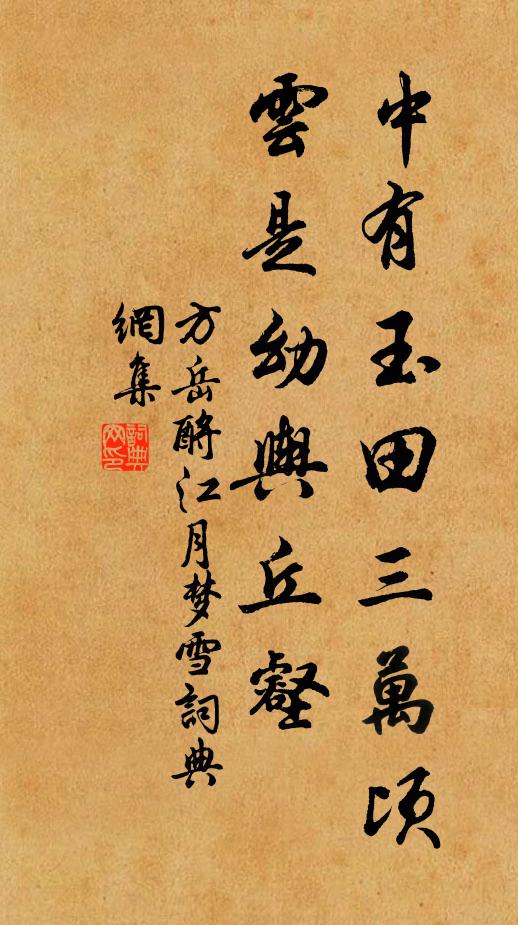 中有玉田三萬頃
雲是幼輿丘壑
方岳酹江月梦雪詞典
網集
詞典
网印